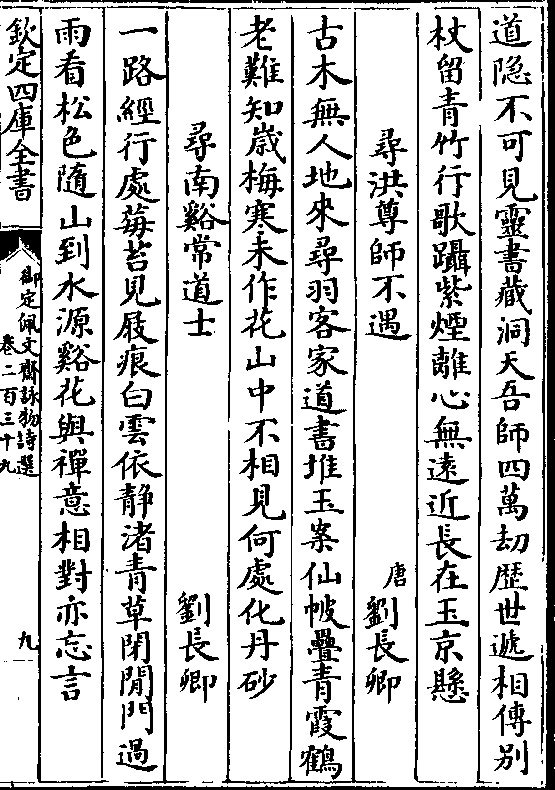 道隐不可見靈書藏洞天吾師四萬劫歴世遞相傳别
杖留青竹行歌躡紫煙離心無逺近長在玉京懸
尋洪尊師不遇
唐劉長卿
古木無人地來尋羽客家道書堆玉案仙帔疊青霞鶴
老難知嵗梅寒未作花山中不相見何處化丹砂
尋南谿常道士
劉長卿
一路經行處莓苔見屐痕白雲依静渚青草閉閒門過
雨看松色隨山到水源谿花與禪意相對亦忘言
欽定四庫全書
御定佩文齋詠物詩選
卷二百三十九
九